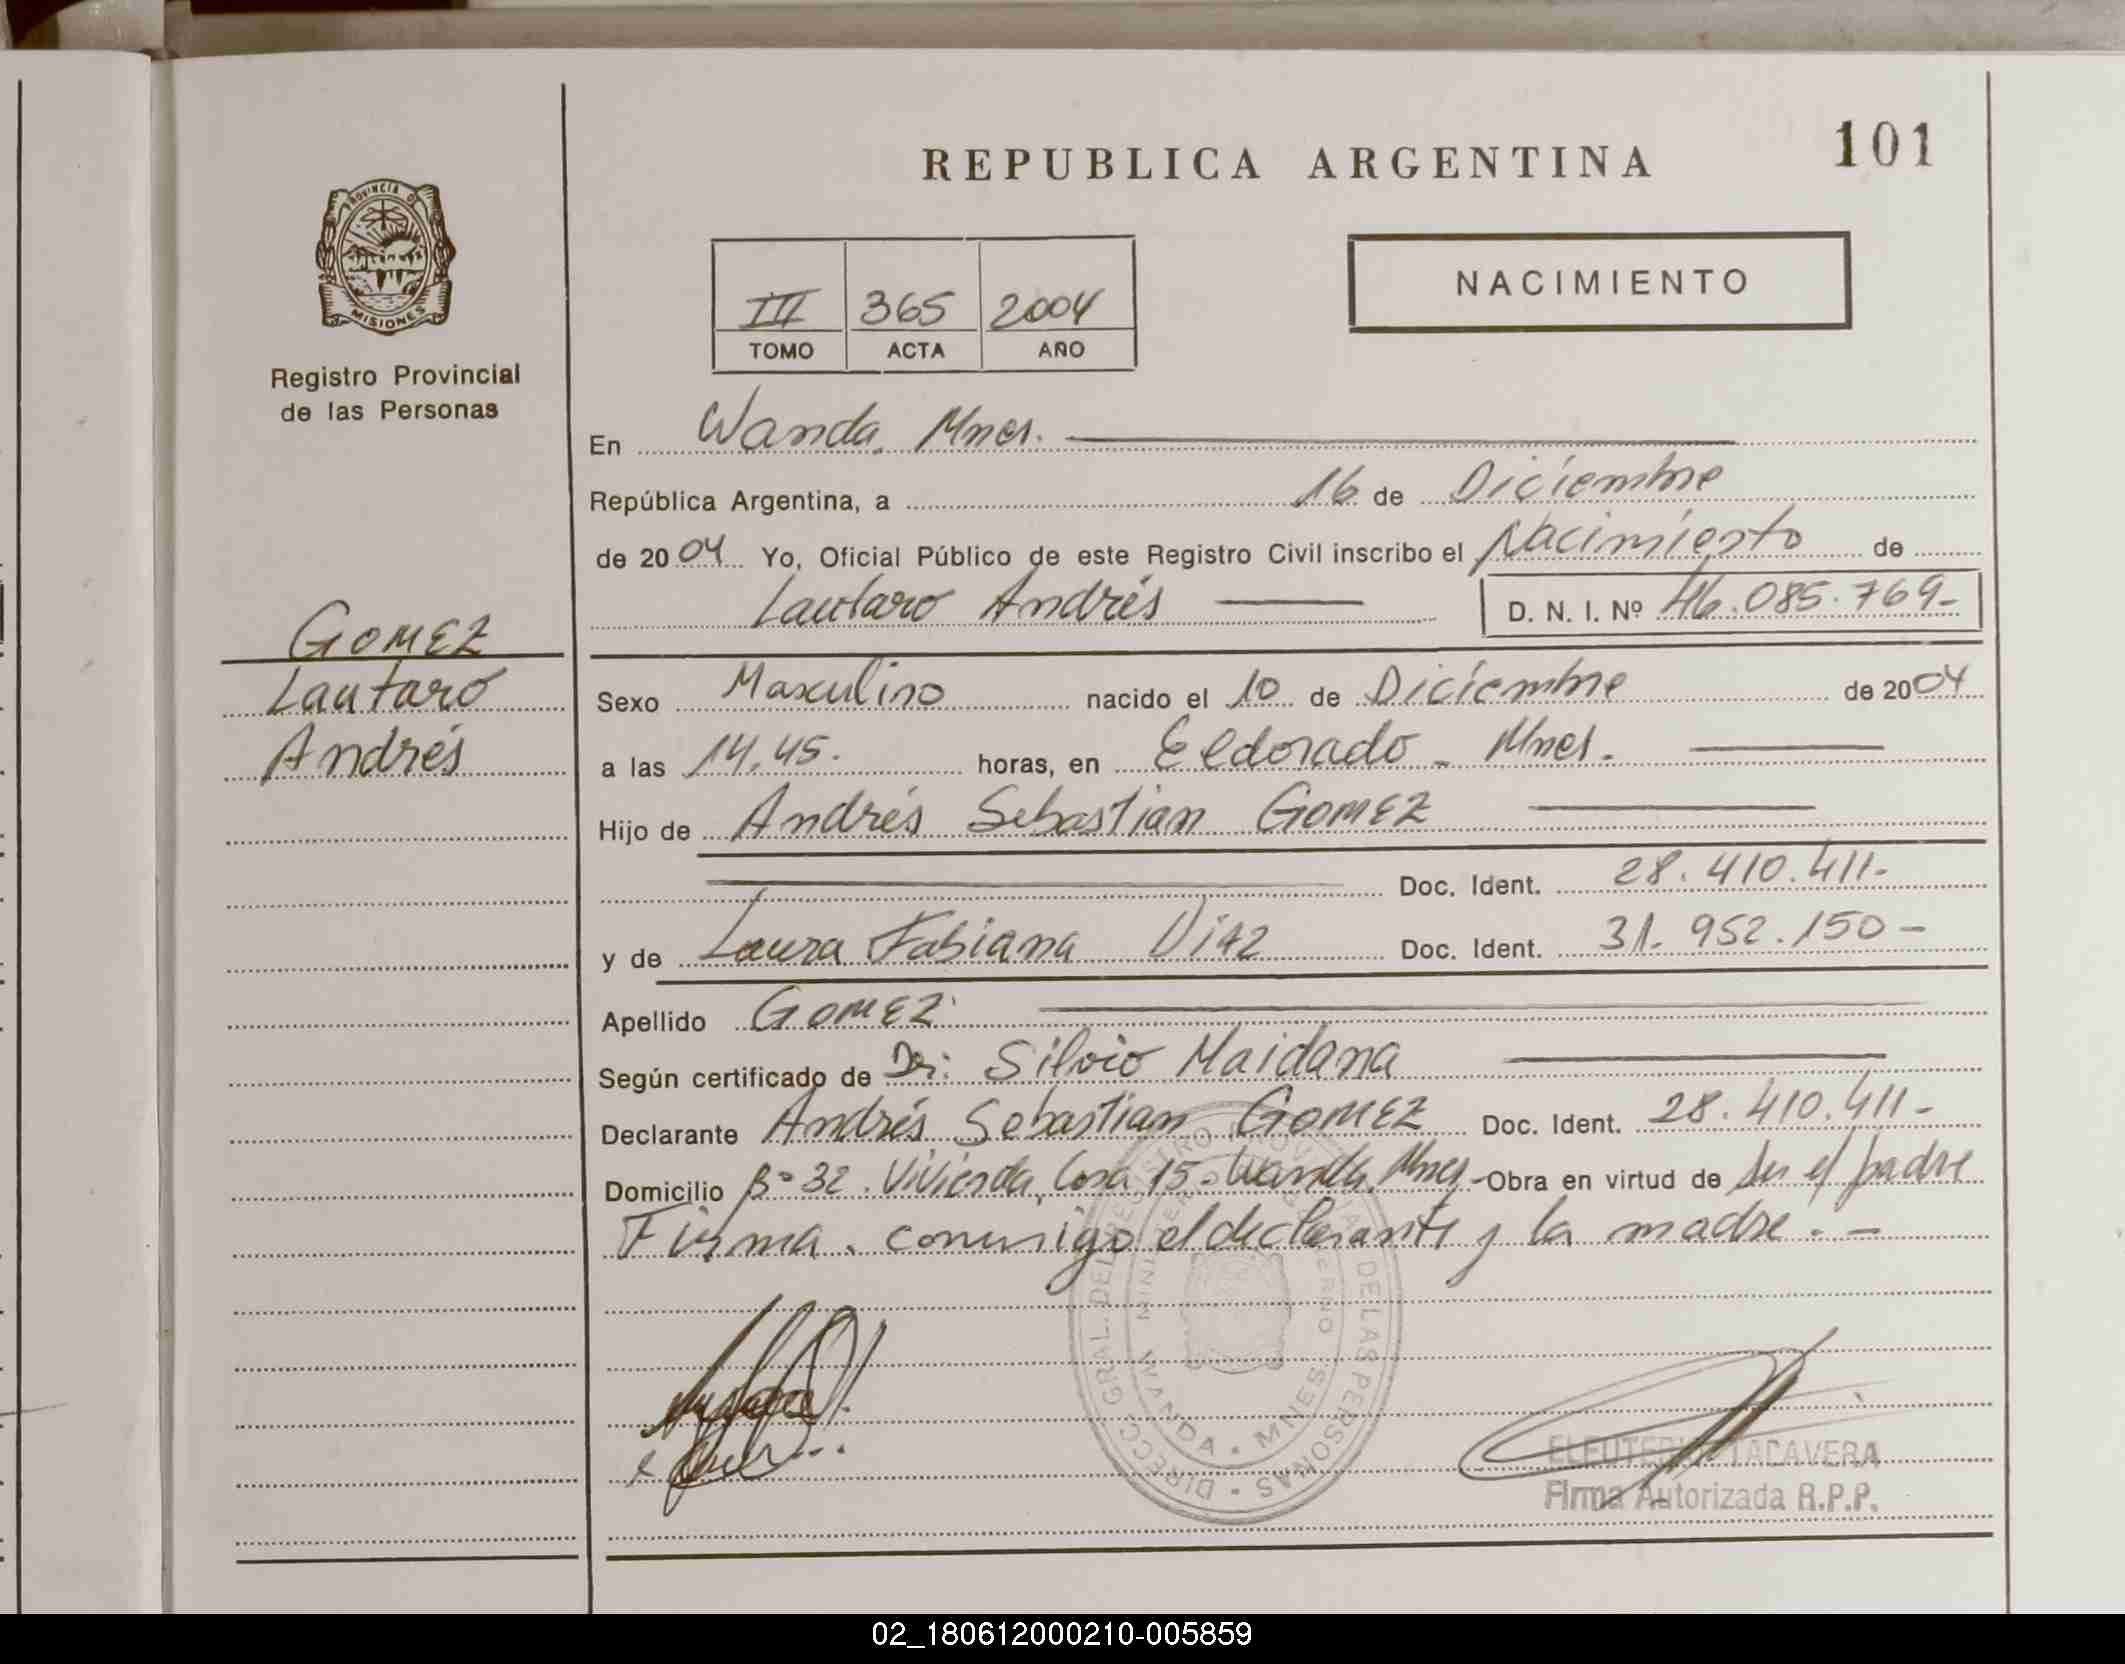 REPUBLICA ARGENTINA
101
PROVINCIA DE
MISIONES
Registro Provincial
de las Personas
III 365 2004
TOMO ACTA AÑO
NACIMIENTO
En Wanda. Mnes.
República Argentina, a 16 de Diciembre
de 2004 Yo, Oficial Público de este Registro Civil inscribo el Nacimiento de
Lautaro Andrés D. N. I. Nº 46.085.769-
GOMEZ
Lautaro
Andrés
Sexo Masculino nacido el 10 de Diciembre de 2004
a las 14.45. horas, en Eldorado - Mnes.
Hijo de Andrés Sebastian GOMEZ
Doc. Ident. 28.410.411-
y de Laura Fabiana Diaz Doc. Ident. 31.952.150-
Apellido GOMEZ
Según certificado de Dr: Silvio Maidana
Declarante Andrés Sebastian GOMEZ Doc. Ident. 28.410.411-
Domicilio Bº 32. Vivienda, Casa 15. Wanda. Mnes - Obra en virtud de ser el padre
Firma. conmigo el declarante y la madre. -
DIRECC. GRAL. DEL REGISTRO DE LAS PERSONAS
WANDA • MNES.
TACAVERA
Firma Autorizada R.P.P.
02_180612000210-005859